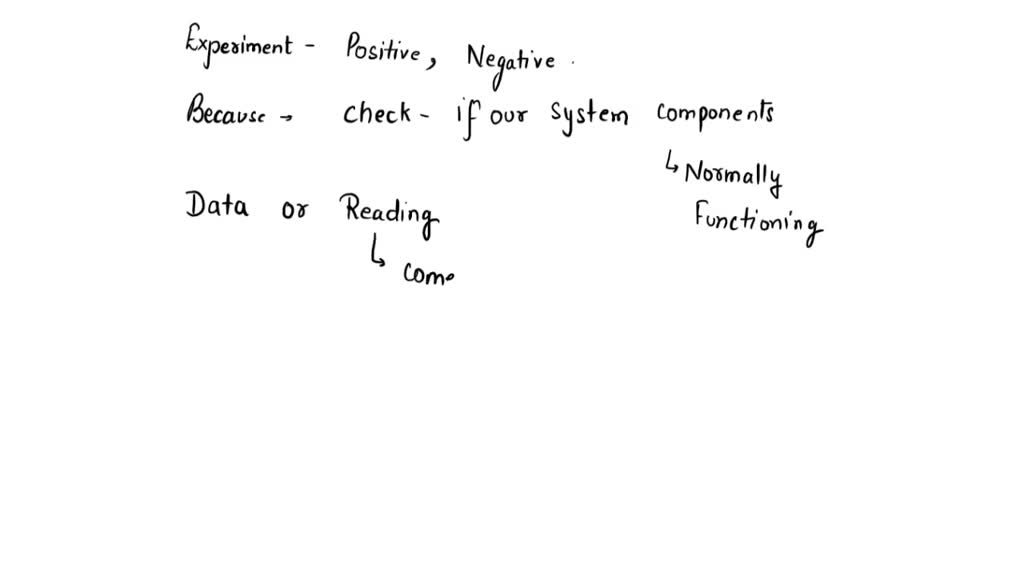 Experiment - Positive, Negative.
Because → check - if our system components
↳ Normally
Functioning
Data or Reading
↳ come